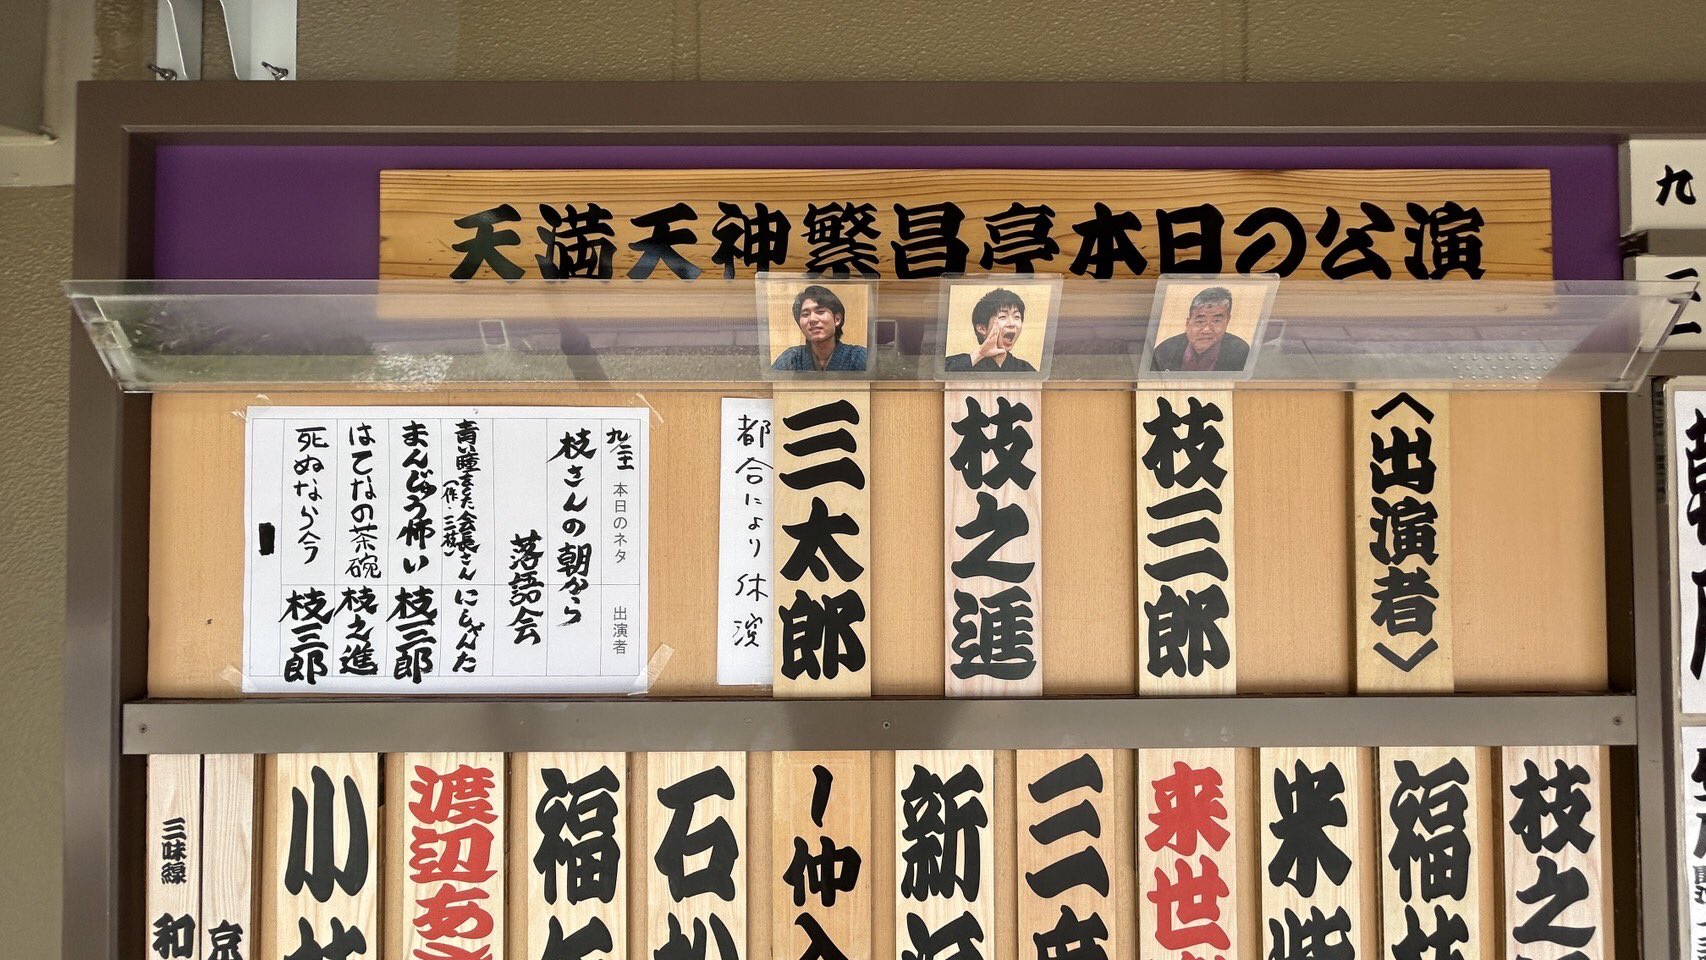 天満天神繁昌亭本日の公演
〈出演者〉
枝三郎
枝之進
三太郎
都合により休演
本日のネタ
出演者
枝さんの朝から
落語会
青い瞳をした会長さん
(作・三枝)
にしゃんた
まんじゅう怖い
枝三郎
はてなの茶碗
枝之進
死ぬなら今
枝三郎
枝之
福枝
米紫
来世
三度
新
〜仲入
石松
福
渡辺あ
小枝
三味線
和
京
九